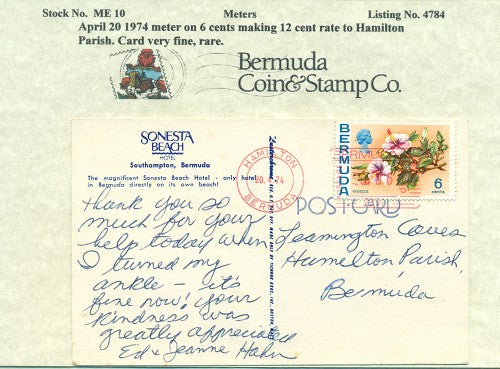 Stock No. ME 10 Meters Listing No. 4784
April 20 1974 meter on 6 cents making 12 cent rate to Hamilton
Parish. Card very fine, rare.
Bermuda
Coin&Stamp Co.
SONESTA
BEACH
HOTEL
Southampton, Bermuda
The magnificent Sonesta Beach Hotel - only hotel
in Bermuda directly on its own beach!
Thank you so
much for your
help today when
I turned my
ankle – it's
fine now! Your
kindness was
greatly appreciated
Ed & Jeanne Hahn
HAMILTON
20. 4. 74
BERMUDA
POST CARD
BERMUDA
HIBISCUS
6
cents
Leamington Caves
Hamilton Parish,
Bermuda